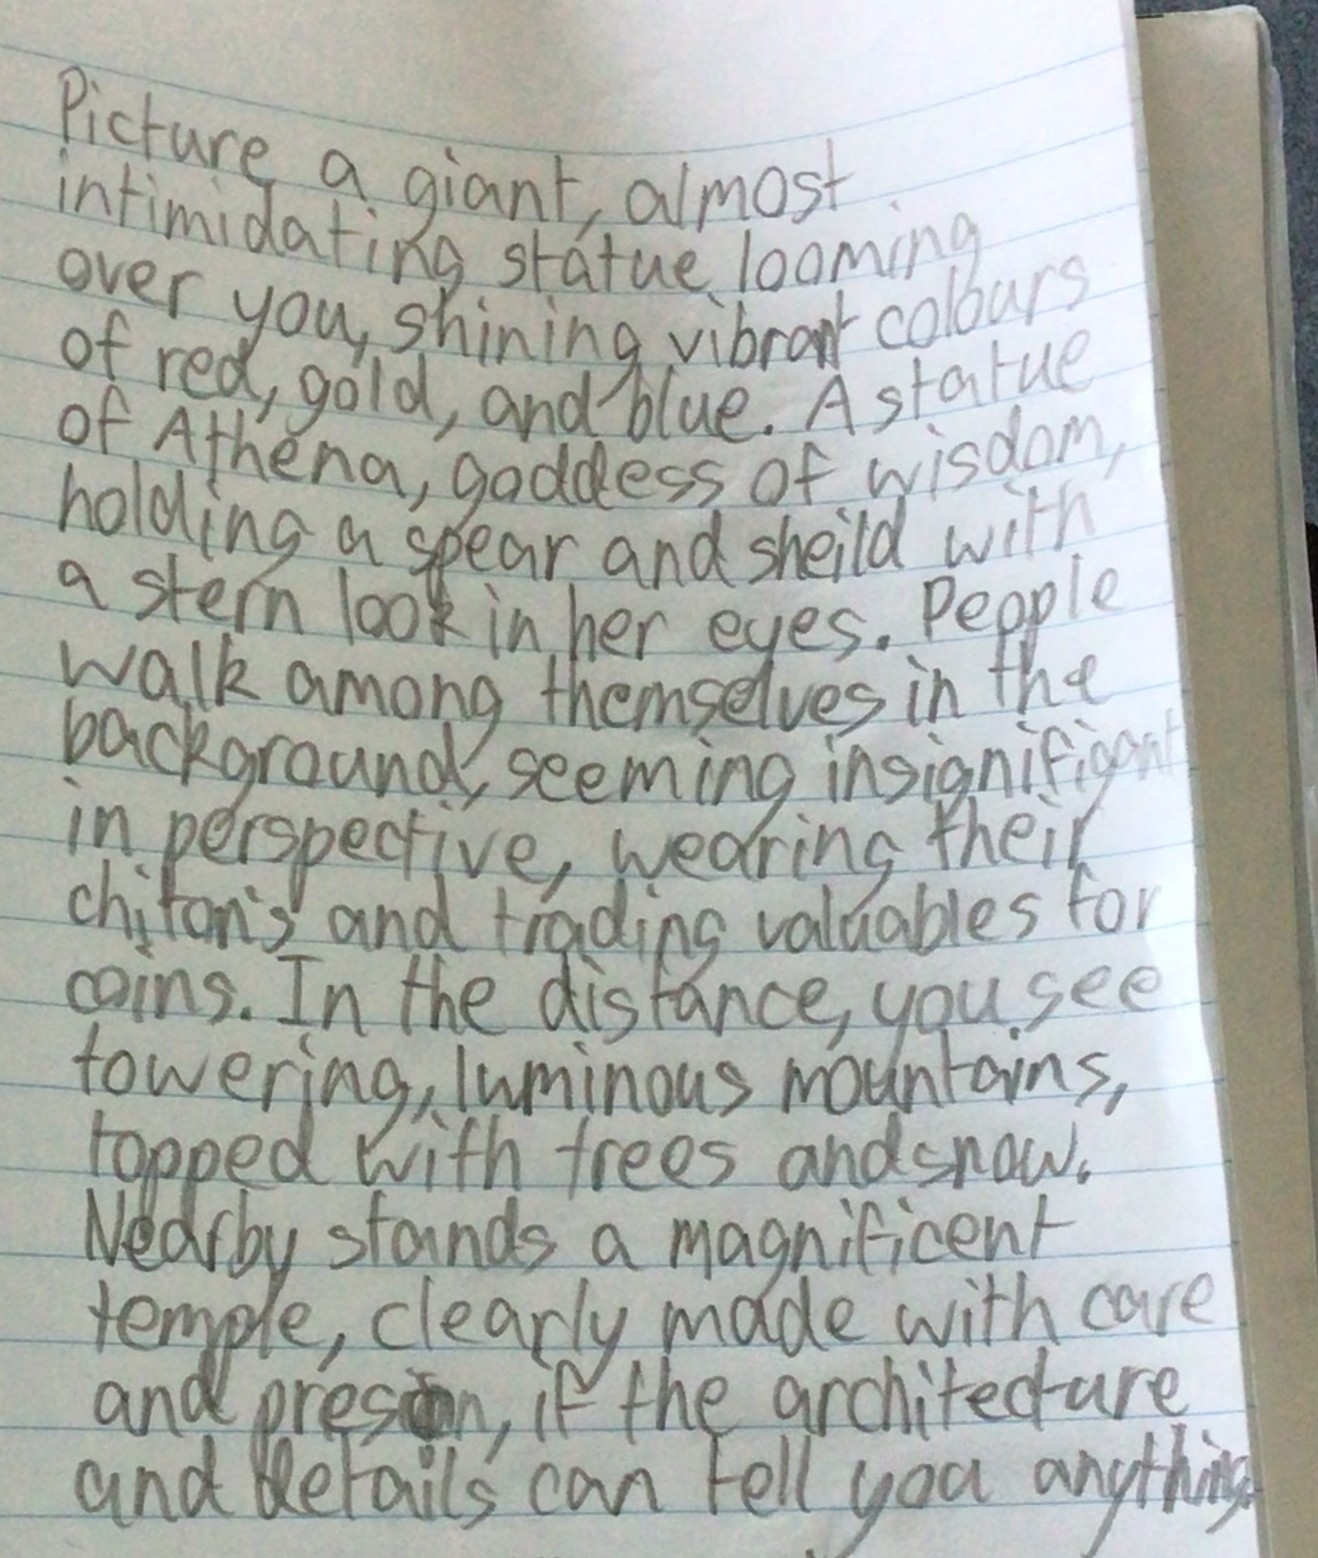 Picture a giant, almost
intimidating statue looming
over you, shining vibrant colours
of red, gold, and blue. A statue
of Athena, goddess of wisdom,
holding a spear and sheild with
a stern look in her eyes. People
walk among themselves in the
background, seeming insignifigant
in perspective, wearing their
chiton's and trading valuables for
coins. In the distance, you see
towering, luminous mountains,
topped with trees and snow.
Nearby stands a magnificent
temple, clearly made with care
and , if the architecture
and details can tell you anything.